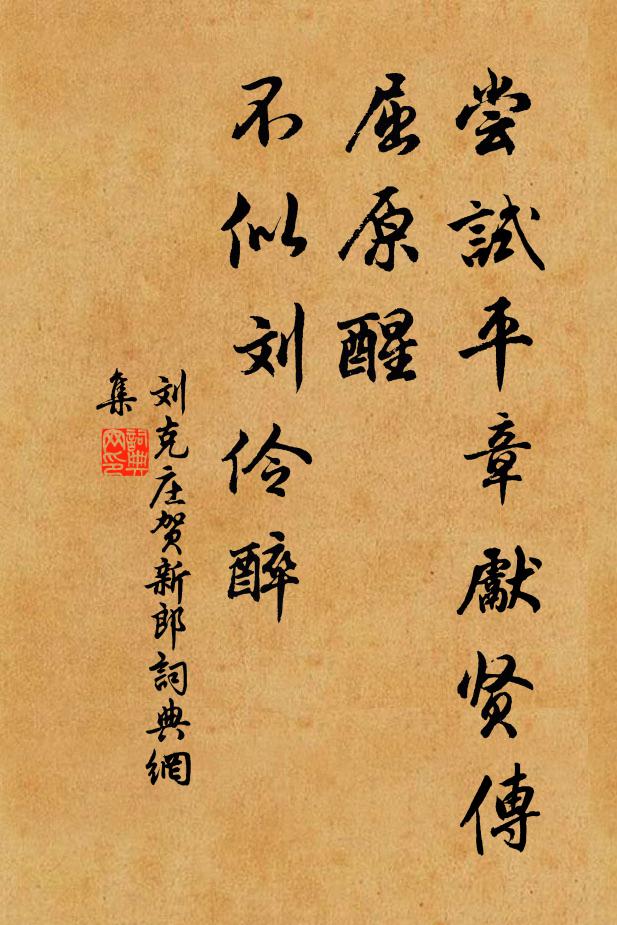 尝試平章獻贤傳
屈原醒
不似刘伶醉
刘克庄贺新郎詞典網
集
詞典網印